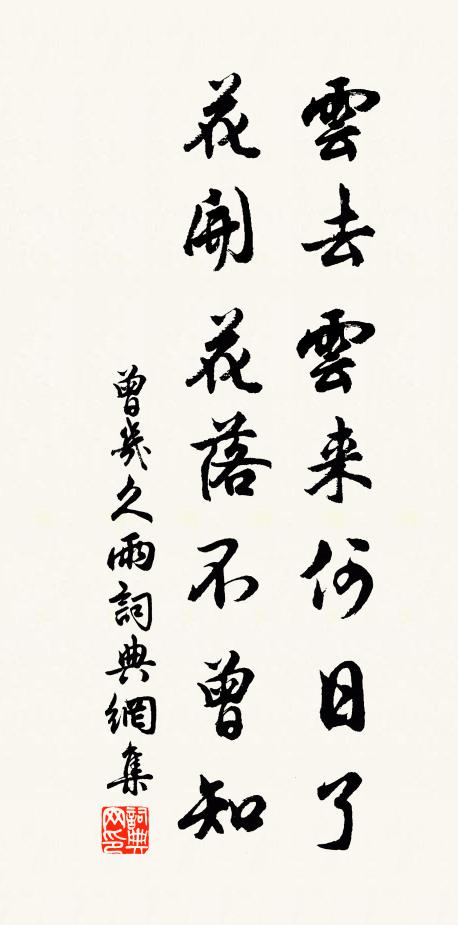 雲去雲来何日了
花開花落不曾知
曾幾久雨詞典網集
詞典网印